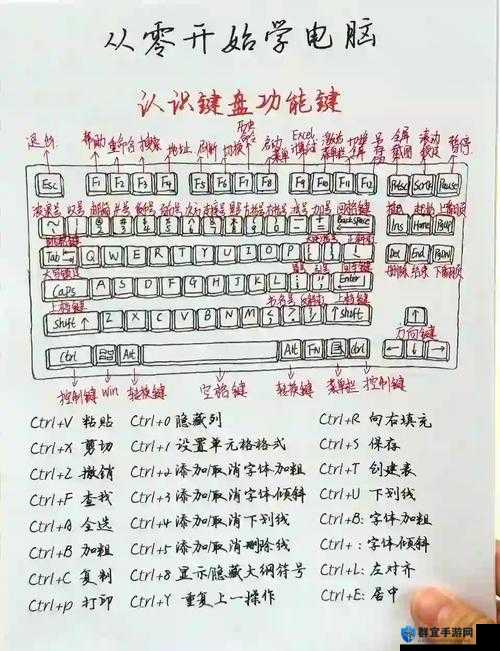 从零开始学电脑
认识键盘功能键
退出 帮助 重命名 搜索 地址 刷新 切换 启动菜单 Excel 激活菜单栏 切换 另存 全屏截图 滚动锁定 暂停
Esc F1 F2 F3 F4 F5 F6 F7 F8 F9 F10 F11 F12 PrtSc ScrLk Pause
Backspace Ins Home PgUp
Tab Q W E R T Y U I O P Del End PgDn
删除 结束 下翻页
Caps A S D F G H J K L Enter
上档键 上档键
Shift ↑ Z X C V B N M Shift ↑ ↑
方向键
Ctrl Alt Alt FN Ctrl ← ↓ →
控制键 win 转换键 空格键 转换键 菜单栏 控制键
Ctrl+V 粘贴 Ctrl+0 隐藏列 Ctrl+R 向右填充
Ctrl+X 剪切 Ctrl+1 设置单元格格式 Ctrl+S 保存
Ctrl+Z 撤销 Ctrl+2 添加/取消字体加粗 Ctrl+T 创建表
Ctrl+F 查找 Ctrl+3 添加/取消字体倾斜 Ctrl+U 下划线
Ctrl+A 全选 Ctrl+4 添加/取消下划线 Ctrl+B: 字体加粗
Ctrl+B 加粗 Ctrl+5 添加/取消删除线 Ctrl+ : 字体倾斜
Ctrl+C 复制 Ctrl+8 显示隐藏大纲符号 Ctrl+L: 左对齐
Ctrl+p 打印 Ctrl+Y 重复上一操作 Ctrl+E: 居中
群宜手游网